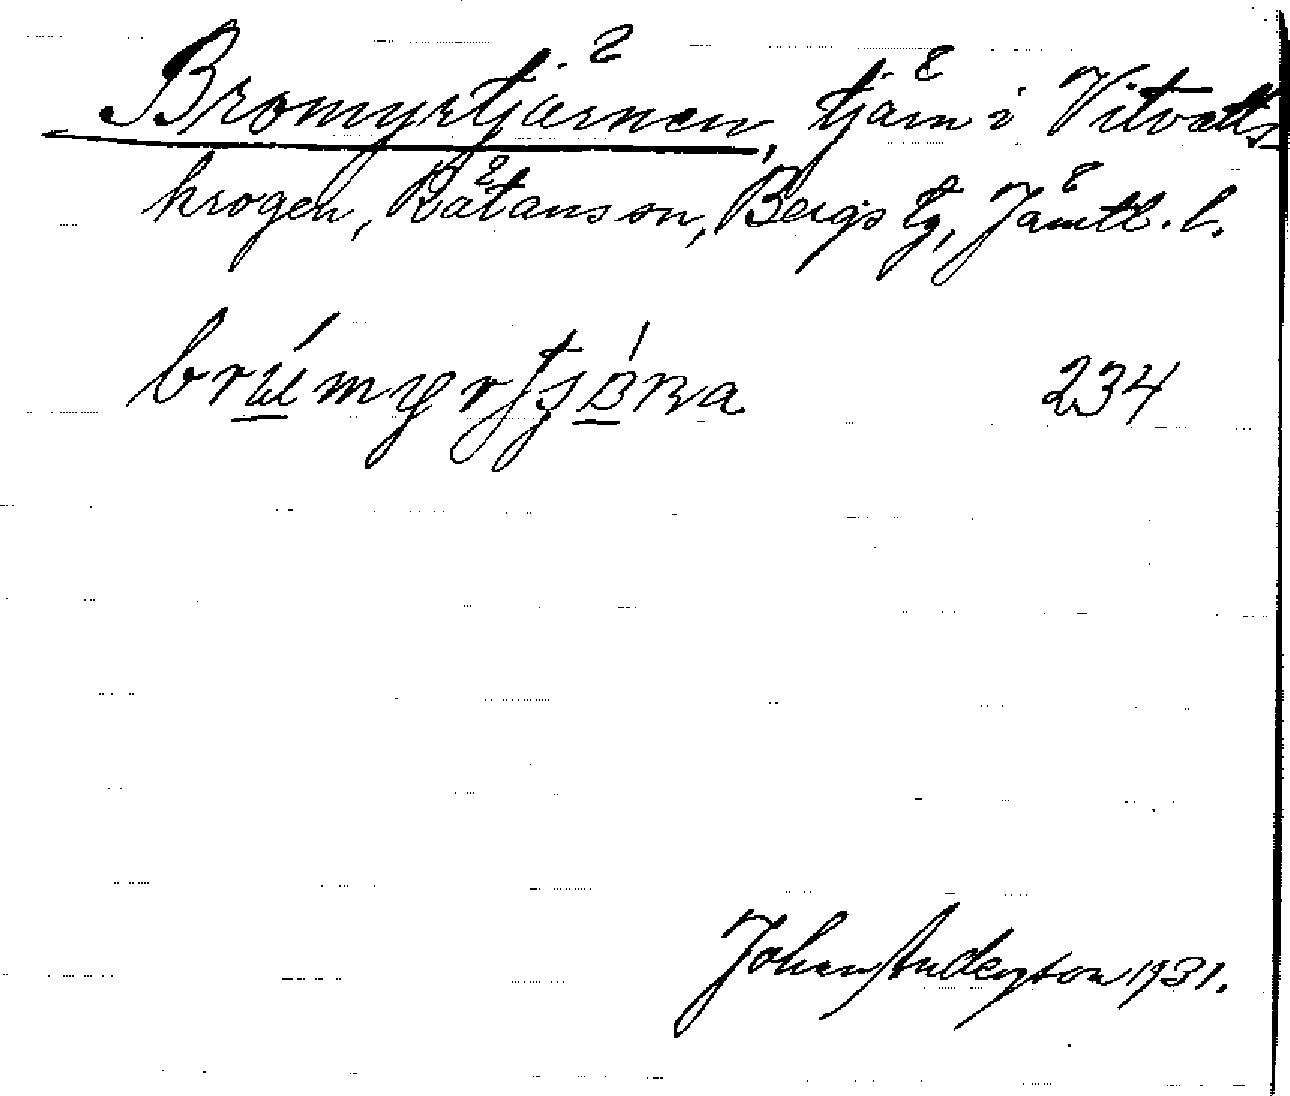 Bromyrtjärnen, tjärn i Vitvatts
krogen, Rätans sn, Bergs tg, Jämtl. l.
234
Johan Anderson 1931.